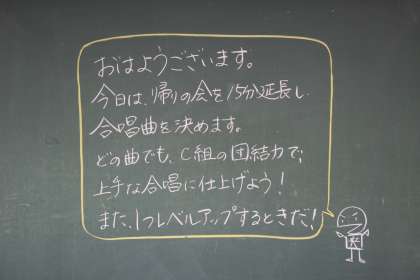 おはようございます。
今日は、帰りの会を15分延長し
合唱曲を決めます。
どの曲でも、C組の団結力で、
上手な合唱に仕上げよう!
また、1つレベルアップするときだ!